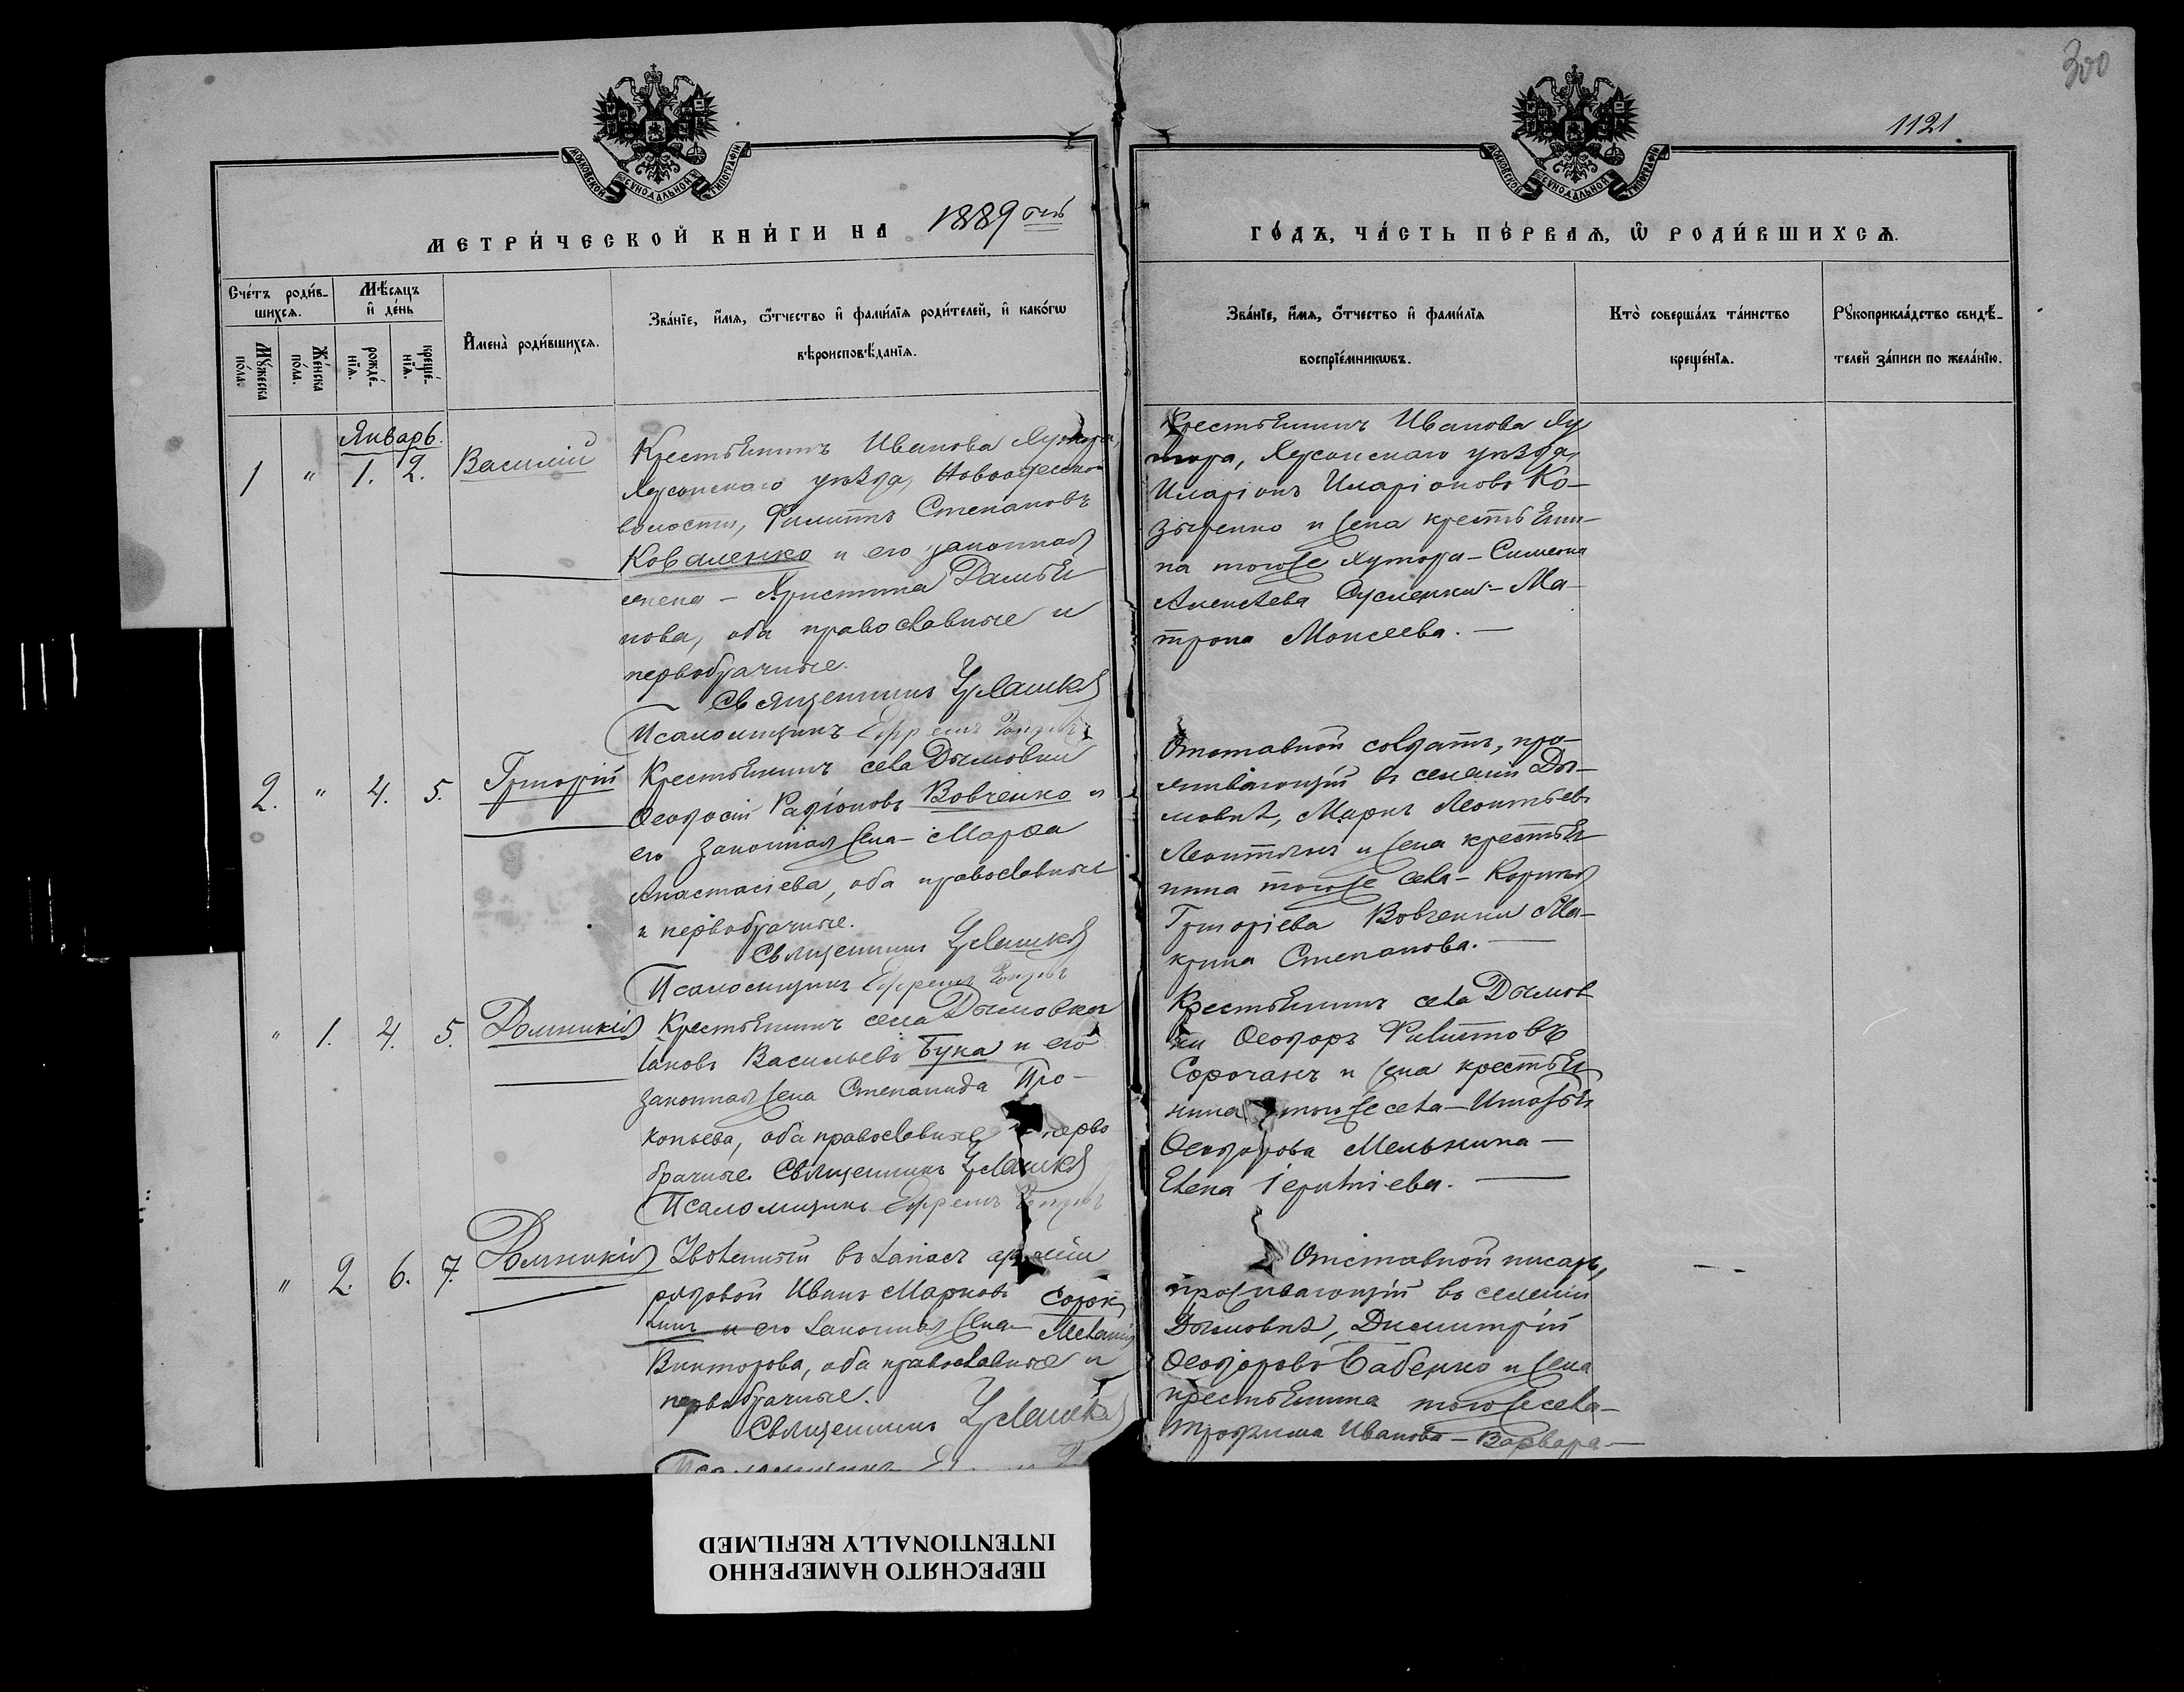 300
1121
МОСКОВСКОЙ СѴНОДАЛЬНОЙ ТИПОГРАФІИ
МОСКОВСКОЙ СѴНОДАЛЬНОЙ ТИПОГРАФІИ
МЕТРИ́ЧЕСКОЙ КНИ́ГИ НА 1889 ый
ГО́ДЪ, ЧА́СТЬ ПЕ́РВАѦ, Ѡ҆ РОДИ́ВШИХСѦ.
Сче́тъ роди́в-
шихсѧ.
Мѣ́сѧцъ
и҆ де́нь
Мꙋ́жеска
по́ла.
Же́нска
по́ла.
рожде́-
нїѧ.
креще́-
нїѧ.
И҆мена̀ роди́вшихсѧ.
Зва́нїе, и҆́мѧ, ѻ҆́тчество и҆ фами́лїѧ роди́телей, и҆ како́гѡ
вѣроисповѣ́данїѧ.
Зва́нїе, и҆́мѧ, ѻ҆́тчество и҆ фами́лїѧ
воспрїе́мникѡвъ.
Кто̀ соверша́лъ та́инство
креще́нїѧ.
Рꙋкоприкла́дство свидѣ́-
телей за́писи по жела́нїю.
Январь.
1 " 1. 2. Василій
Крестьянинъ Иванова Хутора,
Херсонскаго уѣзда, Новоодесской
волости, Филиппъ Степановъ
Коваленко и его законная
жена - Христина Дамья
нова, оба православные и
первобрачные.
Священникъ
Псаломщикъ Ефремъ
Крестьянинъ Иванова Ху
тора, Херсонскаго уѣзда,
Иларіонъ Иларіоновъ Ко-
зыренко и жена крестьяни-
на тогоже хутора - Симеона
Алексѣева - Ма-
трона Моисеева. -
2. " 4. 5. Григорій
Крестьянинъ села Дымовки
Ѳеодосій Радіоновъ Вовченко и
его законная жена - Марѳа
Анастасіева, оба православные
и первобрачные.
Священникъ
Псаломщикъ Ефремъ
Отставной солдатъ, про-
живающій въ селеніи Ды-
мовкѣ, Маркъ Леонтьевъ
и жена крестья
нина тогоже села - Корнилія
Григоріева Вовченки Ма-
крина Степанова. -
" 1. 4. 5. Домникія
Крестьянинъ села Дымовки
Іаковъ Васильевъ Бука и его
законная жена Степанида Про-
копьева, оба православные и перво
брачные. Священникъ
Псаломщикъ Ефремъ
Крестьянинъ села Дымов
ки Ѳеодоръ Филиповъ
Сорочанъ и жена крестья
нина тогоже села -
Ѳеодорова Мельника -
Елена
" 2. 6. 7. Домникія
Уволенный въ запасъ арміи
рядовой Иванъ Марковъ Сорок
кинъ и его законная жена - Меланія
Викторова, оба православные и
первобрачные.
Священникъ
Псаломщикъ
Отставной писарь,
проживающій въ селеніи
Дымовкѣ, Димитрій
Ѳеодоровъ Бабенко и жена
крестьянина тогоже села -
Трофима Иванова - Варвара -
ПЕРЕСНЯТО НАМЕРЕННО
INTENTIONALLY REFILMED